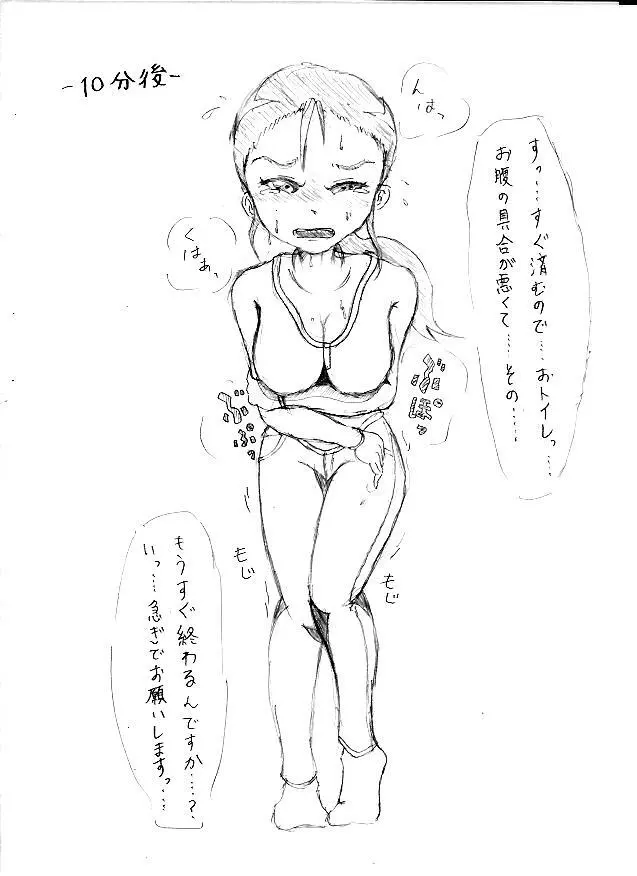 -10分後-
んはっ
すっ……すぐ済むので……おトイレっ……
お腹の具合が悪くて……その……
くはぁっ
ぶぽっ
ぶぷっ
もじ
もじ
もうすぐ終わるんですか……?
いっ……急ぎでお願いしますっ……